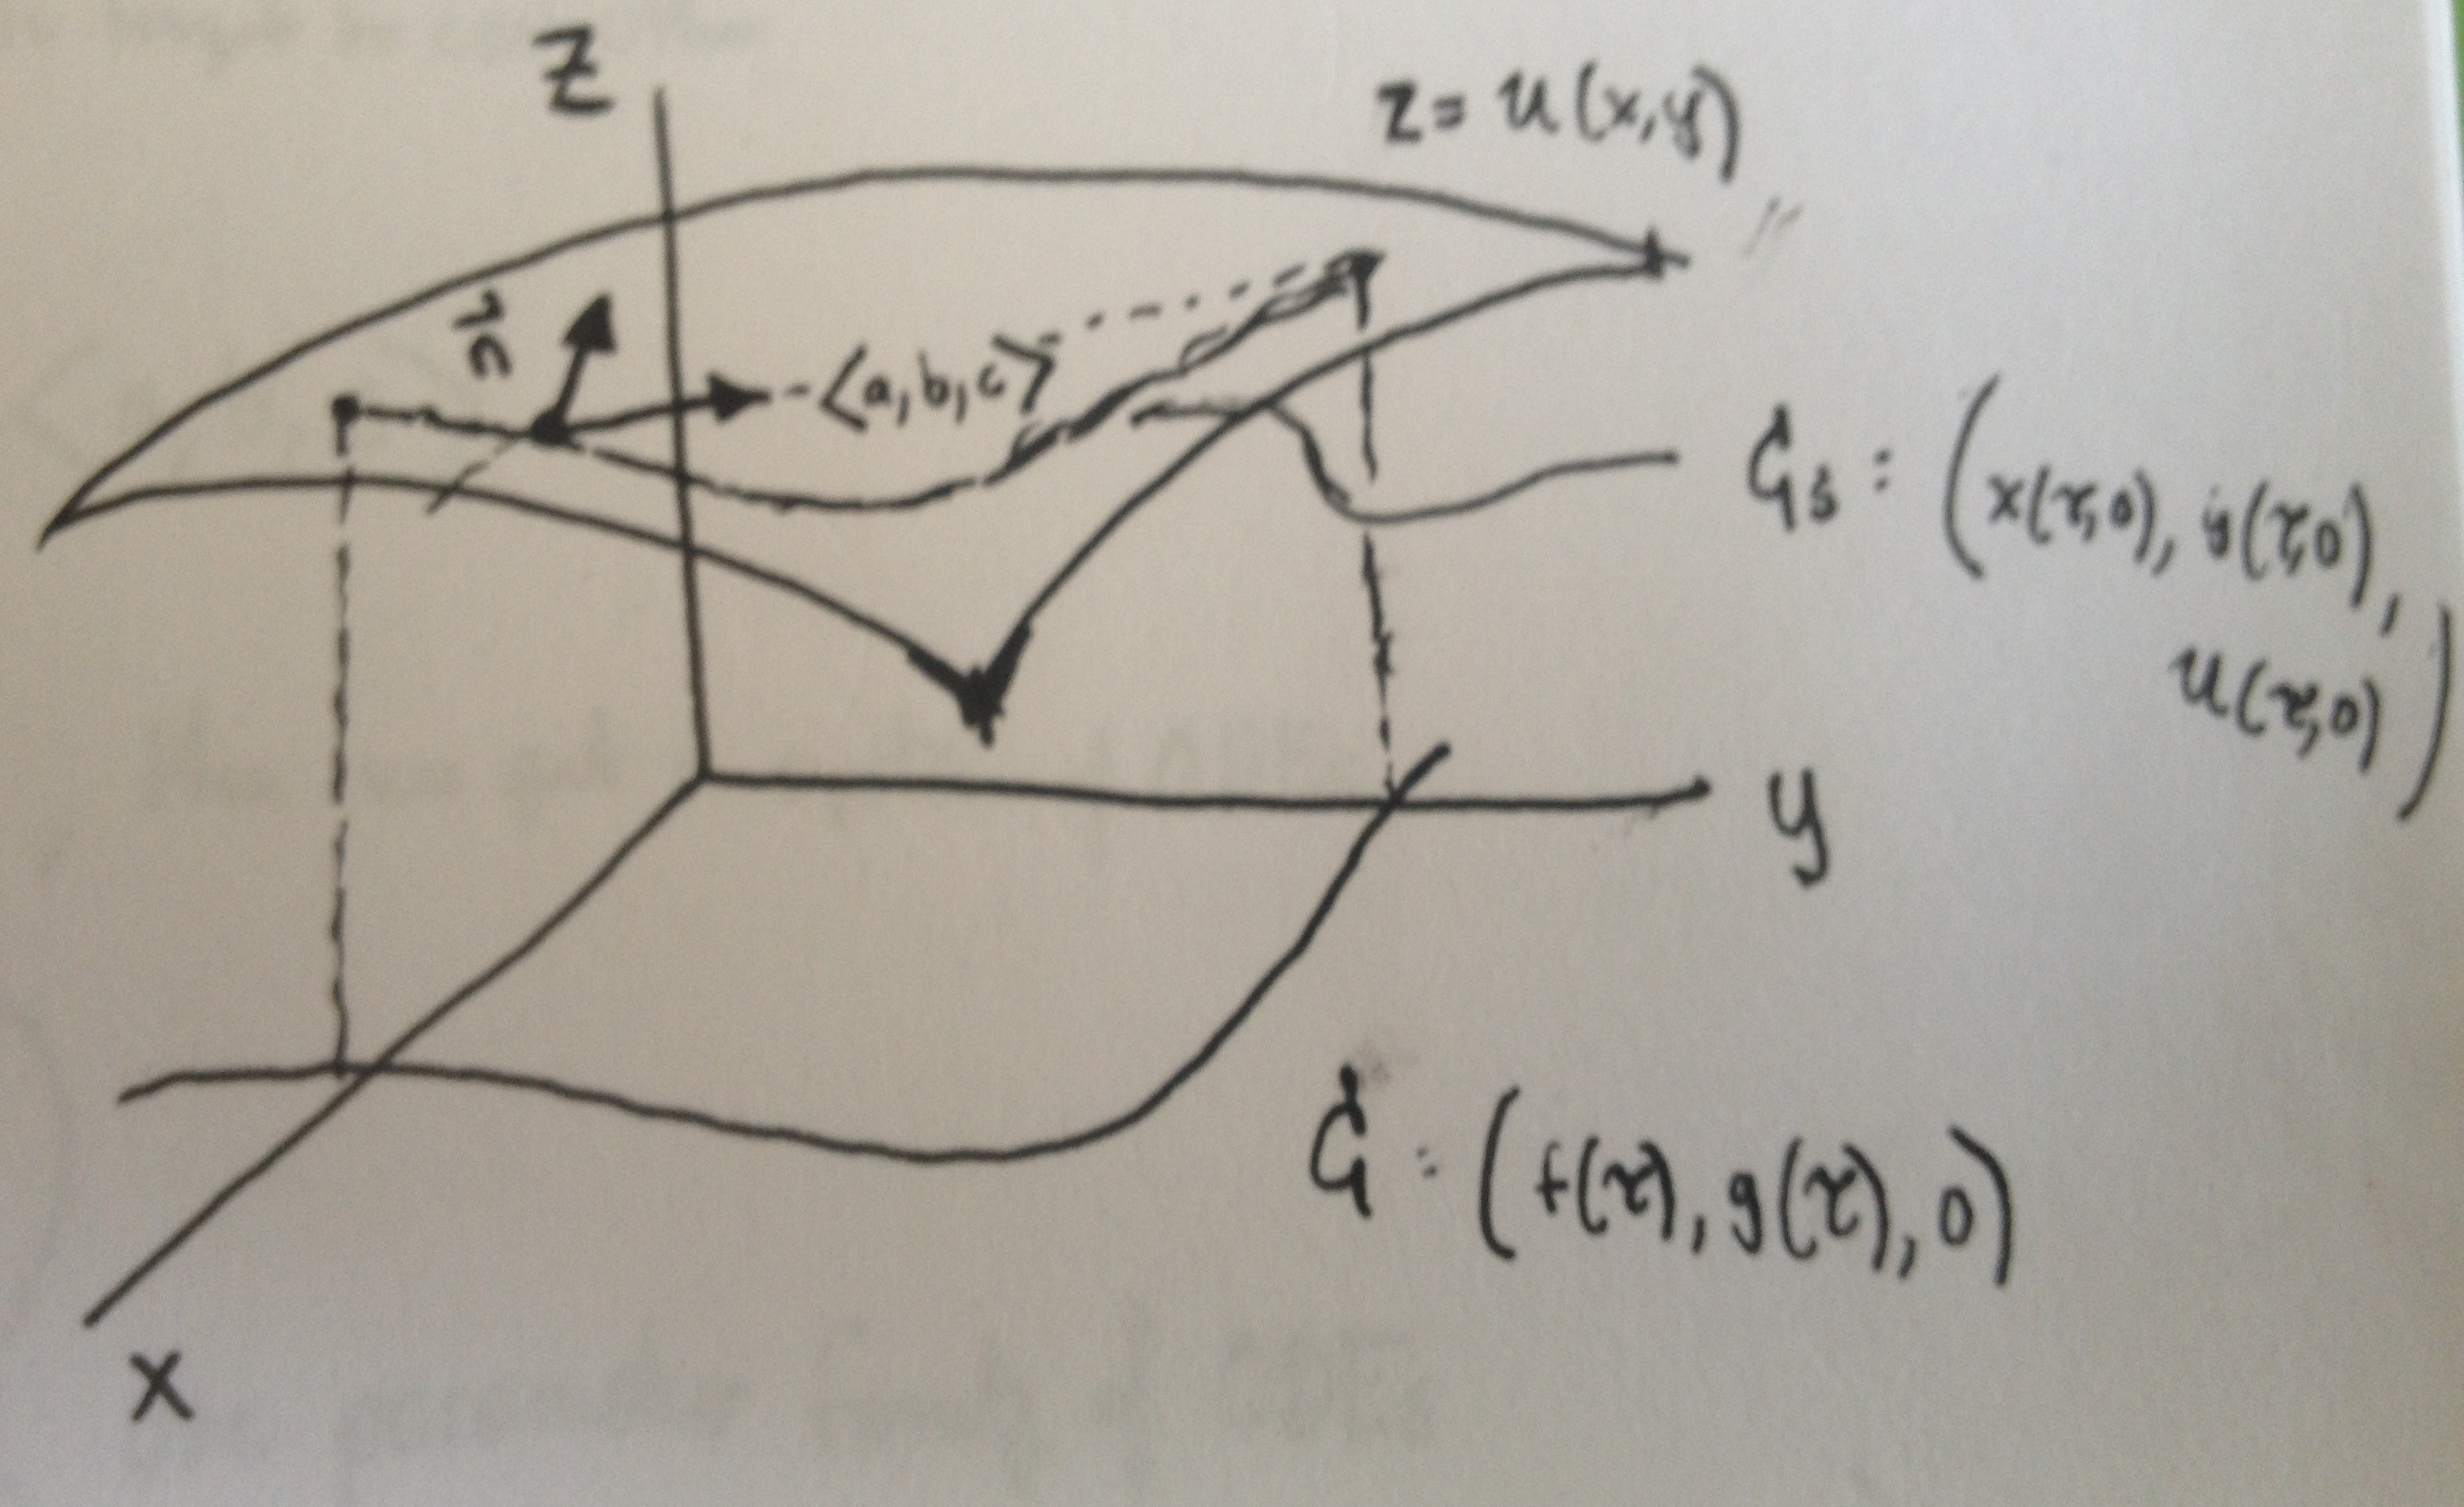 z
z = u(x,y)
n
<a,b,c>
G_s : (x(τ,0), y(τ,0),
u(τ,0))
y
G : (f(τ), g(τ), 0)
x